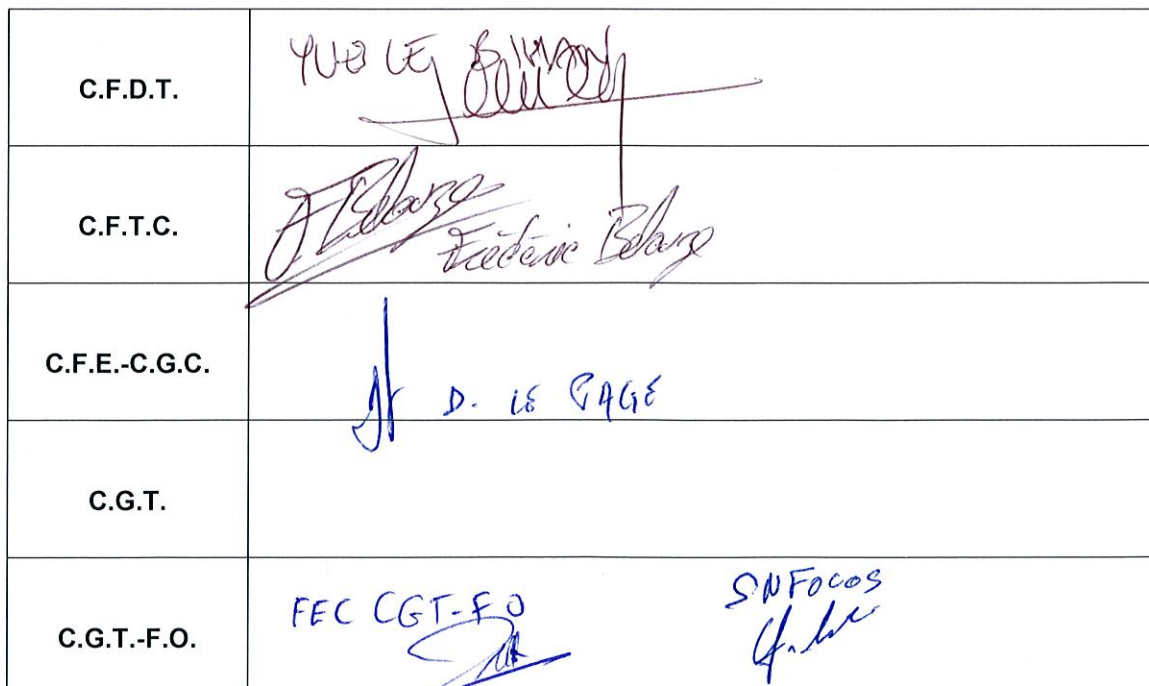 C.F.D.T. YVES LE
C.F.T.C. Frédéric Belouze
C.F.E.-C.G.C. D. LE PAGE
C.G.T.
C.G.T.-F.O. FEC CGT-FO SNFOCOS